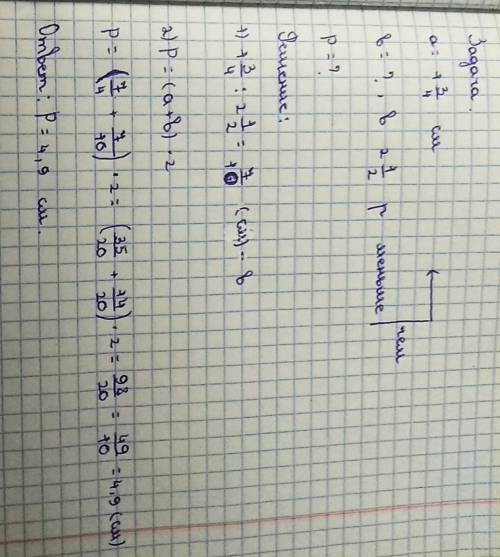 Задача.
a = 1 3/4 см
b = ?, в 2 1/2 р меньше чем
P = ?
Решение:
1) 1 3/4 : 2 1/2 = 7/10 (см) – b
2) P = (a + b) · 2
P = (7/4 + 7/10) · 2 = (35/20 + 14/20) · 2 = 98/20 = 49/10 = 4,9 (см)
Ответ: P = 4,9 см.